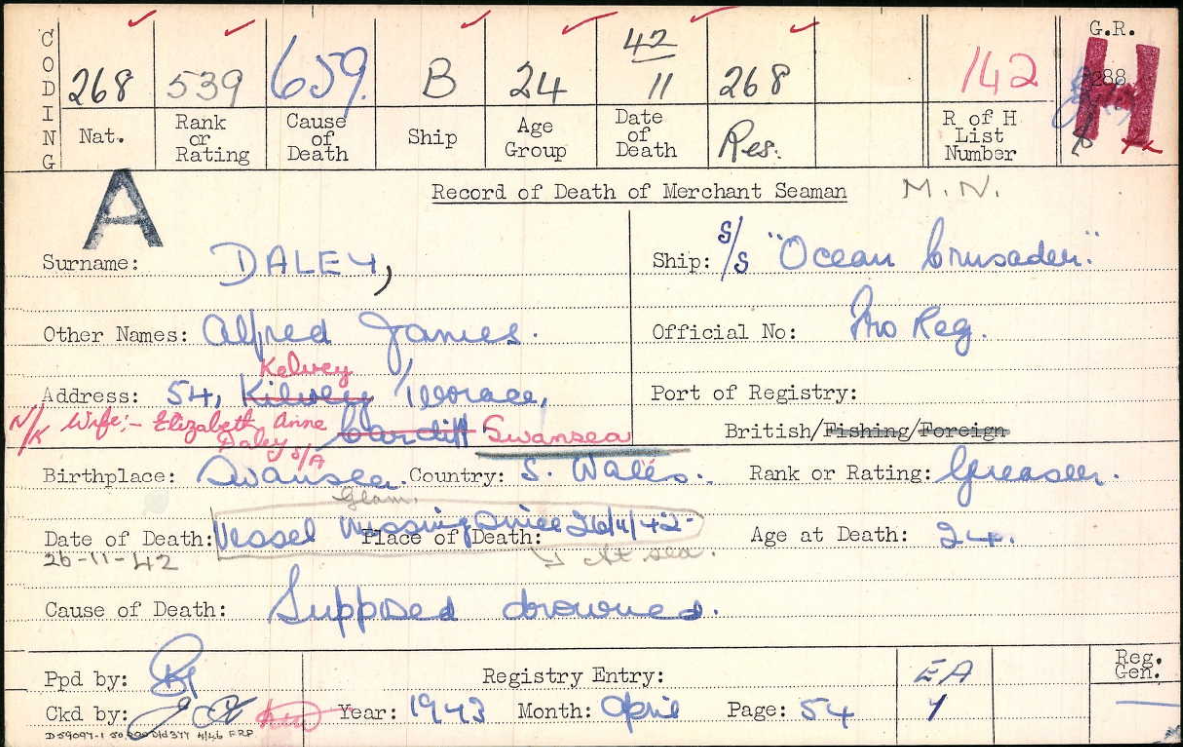 CODING
268 539 659. B 24 42/11 268 142 G.R. 288 H
Nat. Rank or Rating Cause of Death Ship Age Group Date of Death Res. R of H List Number
A Record of Death of Merchant Seaman M.N.
Surname: DALEY, Ship: S/S "Ocean Crusader."
Other Names: Alfred James. Official No: No Reg.
Kelvey
Address: 54, Kilvey Terrace, Port of Registry:
N/K Wife:- Elizabeth Anne Daley S/A Cardiff Swansea British/Fishing/Foreign
Birthplace: Swansea. Glam. Country: S. Wales. Rank or Rating: Greaser.
Date of Death: Vessel missing since 26/11/42- Place of Death: At sea. Age at Death: 24.
26-11-42
Cause of Death: Supposed drowned.
Ppd by: Registry Entry: EA Reg. Gen.
Ckd by: Year: 1943 Month: April Page: 54 1